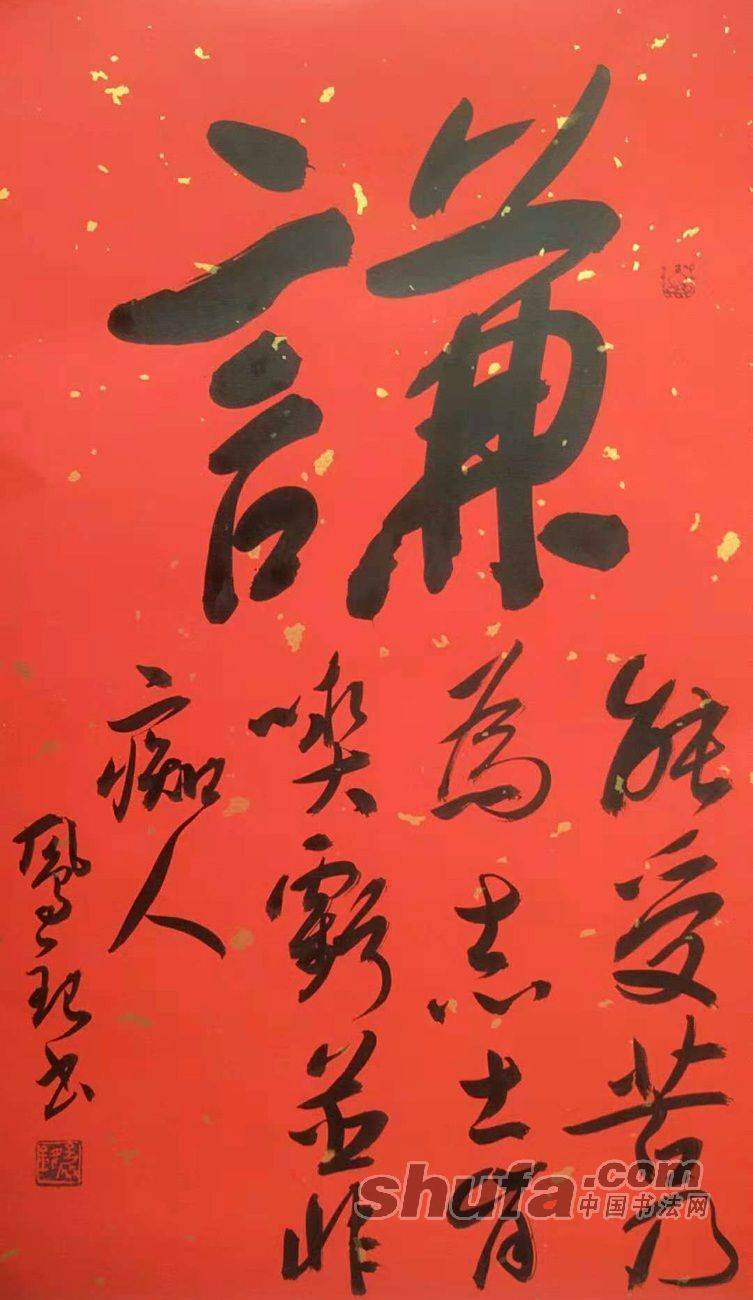 謙
能受苦乃
為志士肯
喫虧並非
痴人
鳳
書
shufa.com
中国书法网